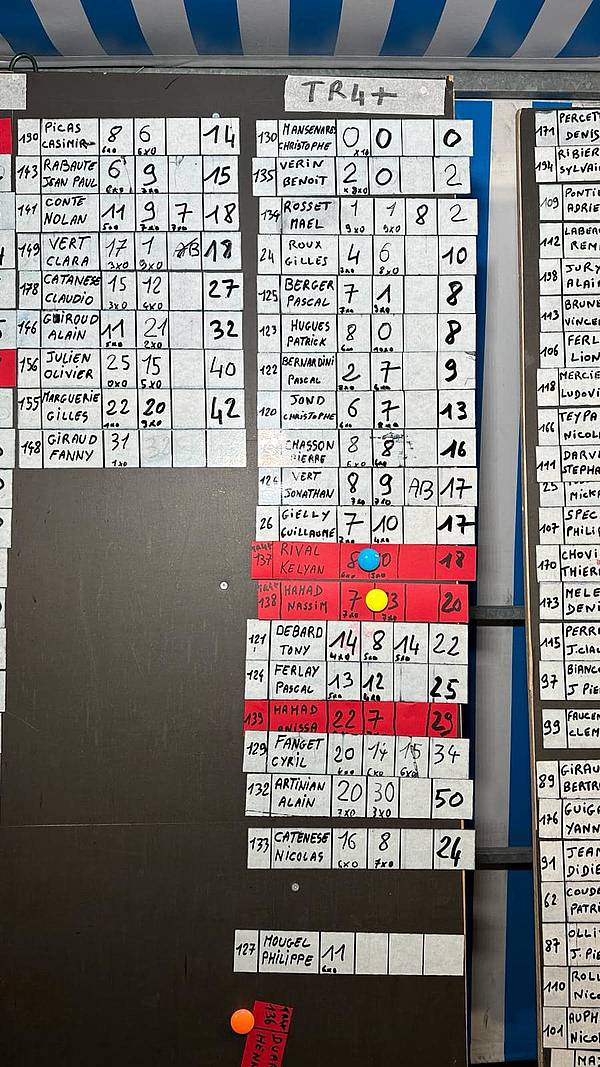 TR4+
130 PICAS CASIMIR 8 6 14
6x0 6x0
143 RABAUTE JEAN PAUL 6 9 15
141 CONTE NOLAN 11 9 7 18
149 VERT CLARA 17 1 AB 18
3x0 9x0
178 CATANESE CLAUDIO 15 12 27
3x0 4x0
146 GUIROUD ALAIN 11 21 32
5x0 2x0
156 JULIEN OLIVIER 25 15 40
0x0 5x0
155 MARGUERIE GILLES 22 20 42
148 GIRAUD FANNY 31
1x0
130 MANSENARES CHRISTOPHE 0 0 0
x10
135 VERIN BENOIT 2 0 2
134 ROSSET MAEL 1 1 8 2
9x0 9x0
24 ROUX GILLES 4 6 10
8x0
125 BERGER PASCAL 7 1 8
123 HUGUES PATRICK 8 0 8
122 BERNARDINI PASCAL 2 7 9
120 JOND CHRISTOPHE 6 7 13
CHASSON PIERRE 8 8 16
VERT JONATHAN 8 9 AB 17
26 GIELLY GUILLAUME 7 10 17
137 RIVAL KELYAN 8 0 18
138 HAHAD NASSIM 7 3 20
121 DEBARD TONY 14 8 14 22
4x0 5x0 5x0
124 FERLAY PASCAL 13 12 25
139 HAHAD ANISSA 22 7 29
129 FANGET CYRIL 20 14 15 34
132 ARTINIAN ALAIN 20 30 50
3x0
133 CATENESE NICOLAS 16 8 24
6x0 7x0
127 MOUGEL PHILIPPE 11
6x0
136
171 PERCET DENIS
194 RIBIER SYLVAI
109 PONTI ADRIE
112 LABEA REM
198 JURY ALAI
113 BRUNE VINCE
106 FERL LION
118 MERCIE LUDOVI
166 TEYPA NICOL
111 DARV STEPHA
25 MICKA
107 SPEC PHILI
170 CHOVI THIER
173 MELE DENI
115 PERRI J.CLAU
97 BIANC J PIE
99 FAUCE CLEM
89 GIRAU BERTR
176 GUIG YANN
91 JEAN DIDIE
62 COUDE PATRI
87 OLLI J. PIE
110 ROLL NICO
101 AUPH NICO